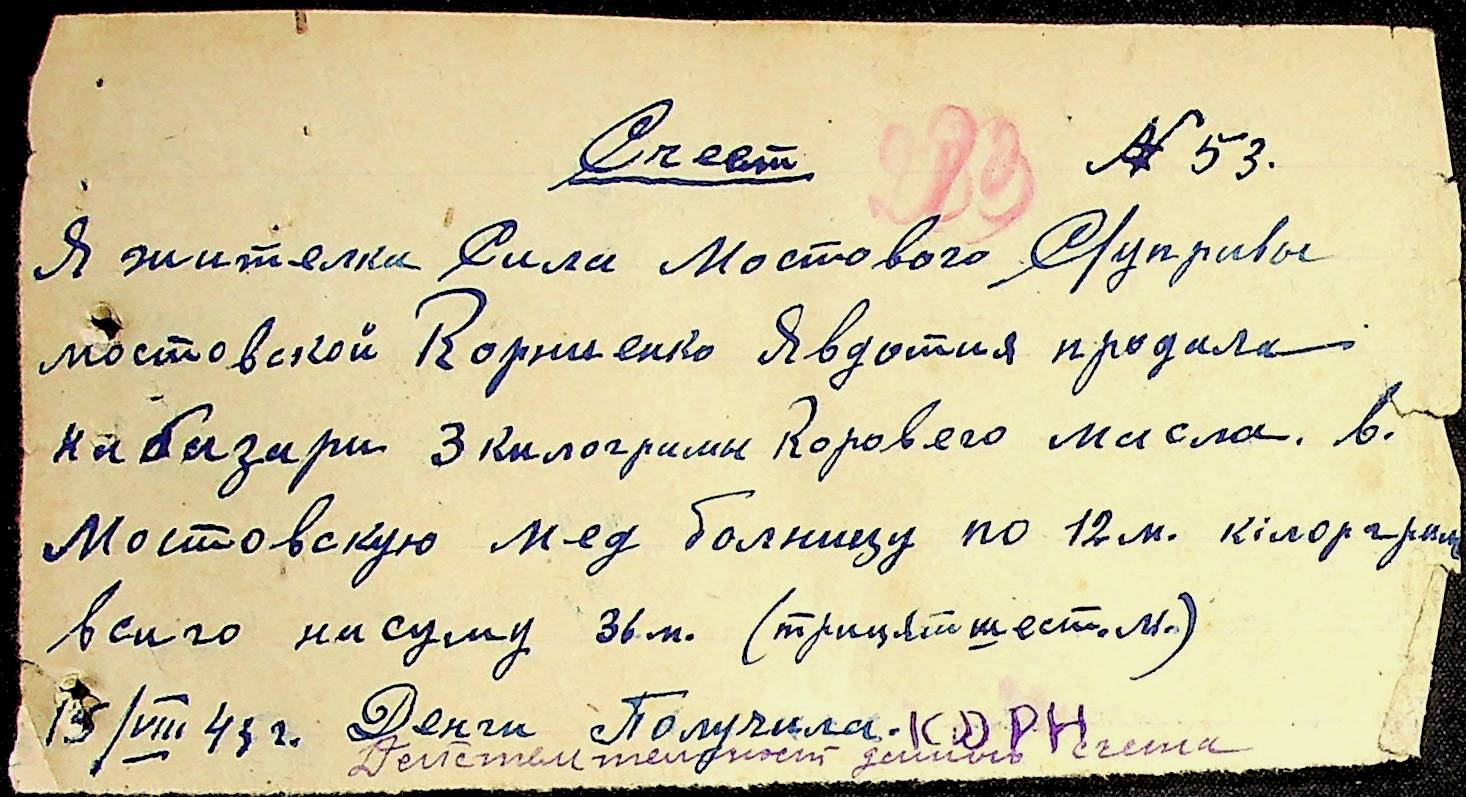 Счеет № 53.
233
Я жителка Сила Мостового С/управы
мостовской Корниенко Явдотия продала
на базари 3 килограмы Коровего масла. в.
Мостовскую мед болницу по 12 м. кілорграм
всиго на суму 36 м. (трицят шест. м.)
15/VIII 43 г. Денги Получила. КОРН
Действительност данного счета